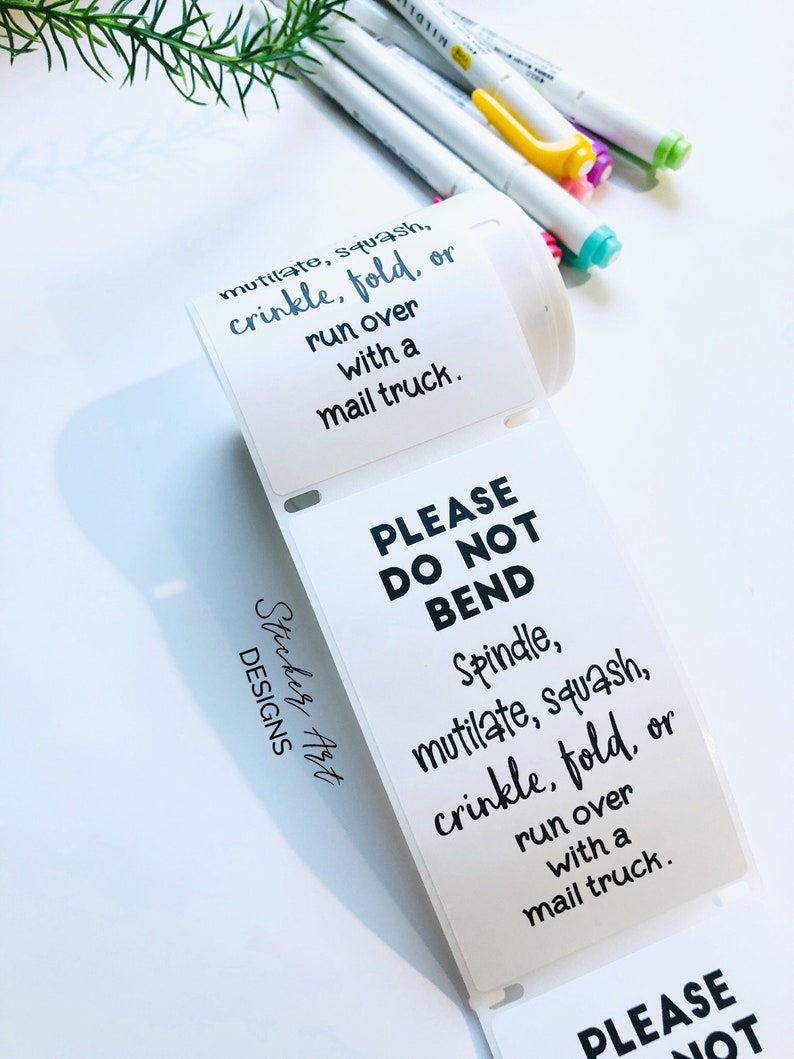 MILDLI
mutilate, squash,
crinkle, fold, or
run over
with a
mail truck.
PLEASE
DO NOT
BEND
Spindle,
mutilate, squash,
crinkle, fold, or
run over
with a
mail truck.
Sticker Art
DESIGNS
PLEASE
NOT